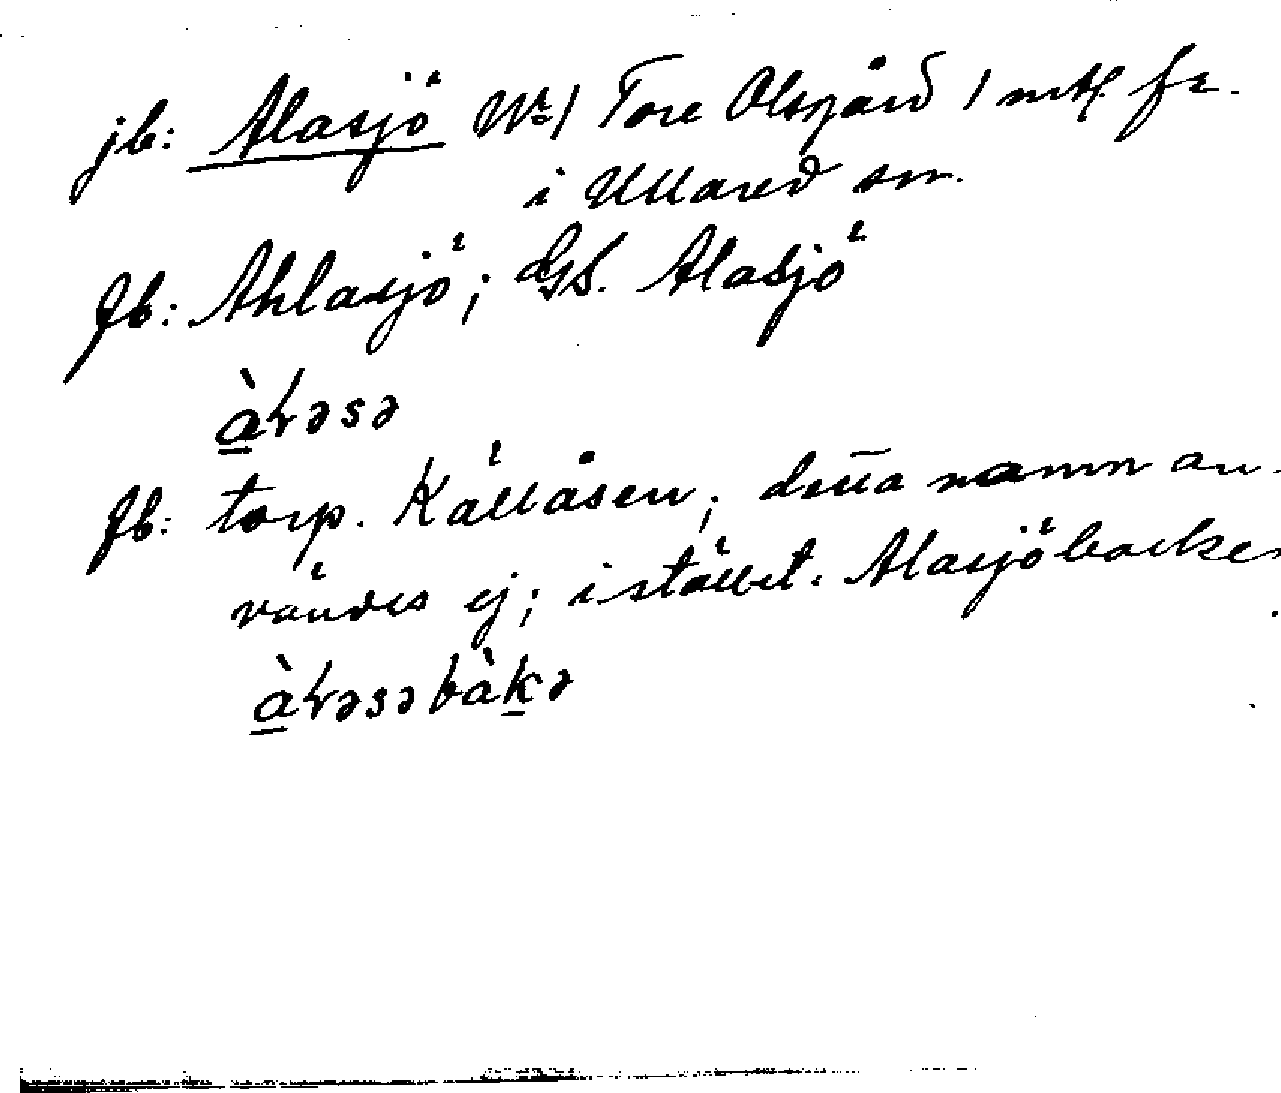 jb: Alasjö Nr 1 Tore Olsgård 1 mtl fr.
i Ullared sn.
fb: Ahlasjö; GS. Alasjö
fb: torp. Källåsen; detta namn an-
vändes ej; i stället: Alasjöbacken